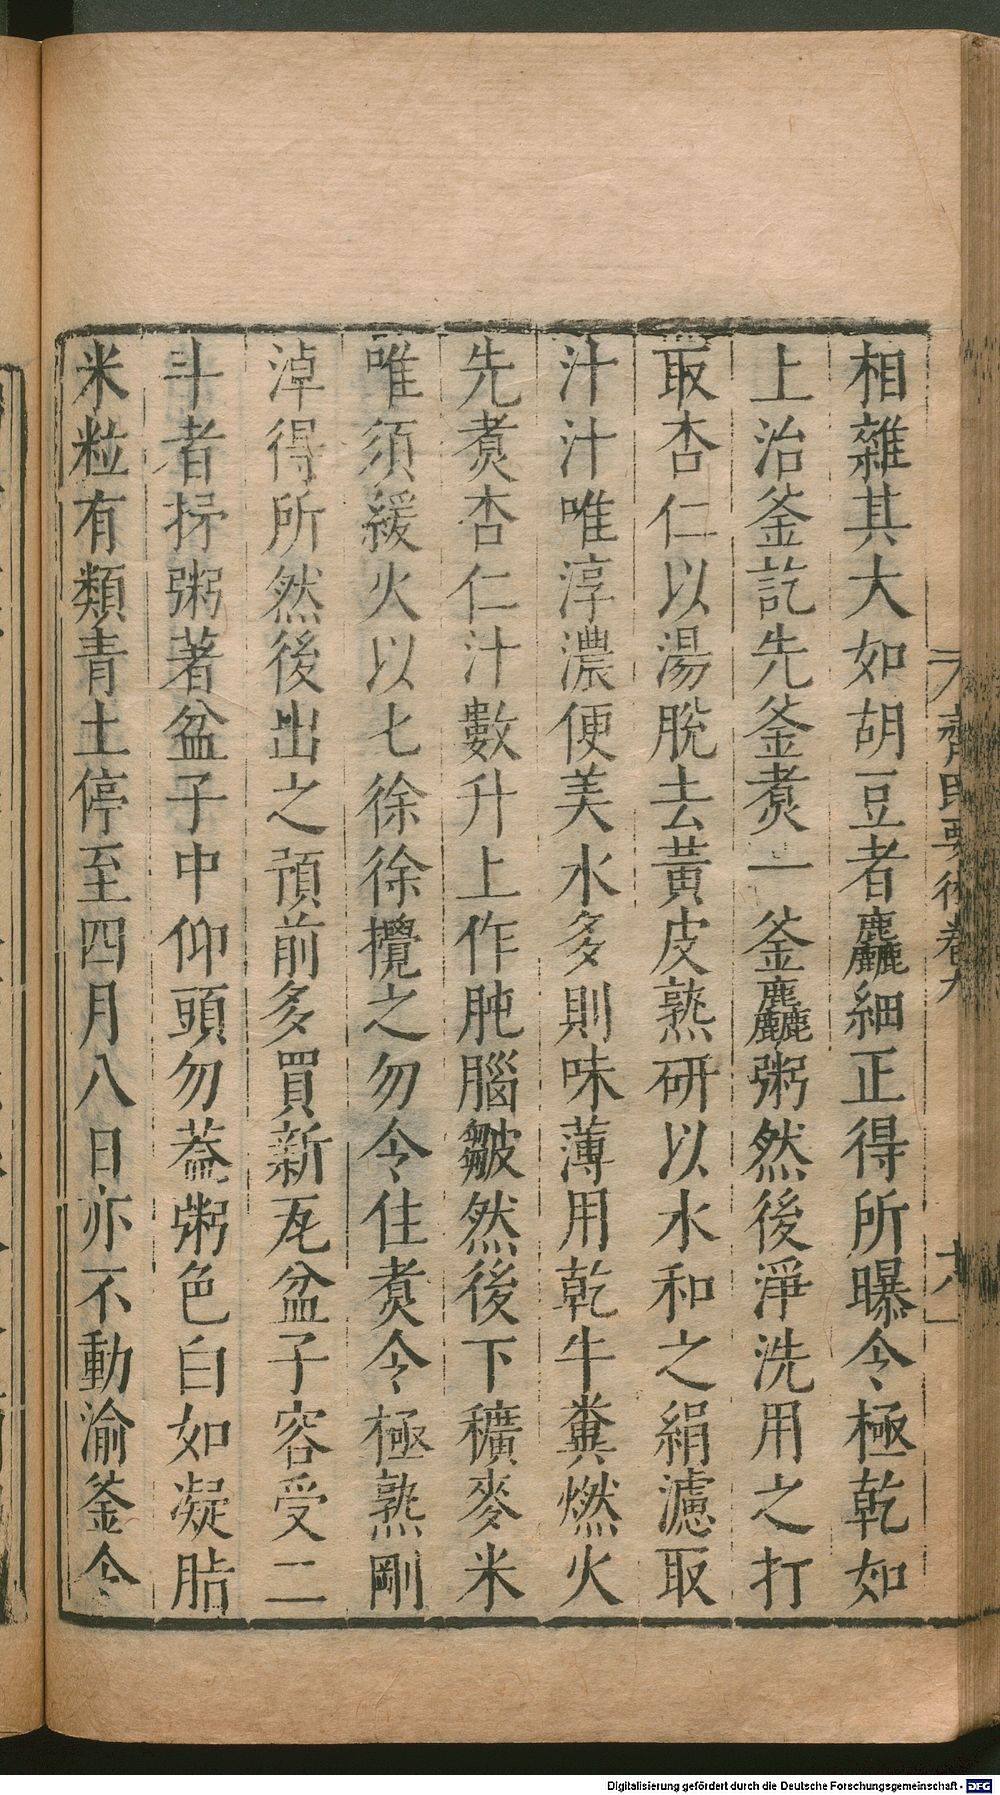 相雜其大如胡豆者麤細正得所曝令極乾如
上治釜訖先釜煑一釜麤粥然後淨洗用之打
取杏仁以湯脫去黃皮熟研以水和之絹濾取
汁汁唯淳濃便美水多則味薄用乾牛糞燃火
先煑杏仁汁數升上作肫腦皺然後下穬麥米
唯須緩火以匕徐徐攪之勿令住煑令極熟剛
淖得所然後出之預前多買新瓦盆子容受二
斗者抒粥著盆子中仰頭勿葢粥色白如凝脂
米粒有類青土停至四月八日亦不動渝釜令
齊民要術卷九
Digitalisierung gefördert durch die Deutsche Forschungsgemeinschaft - DFG